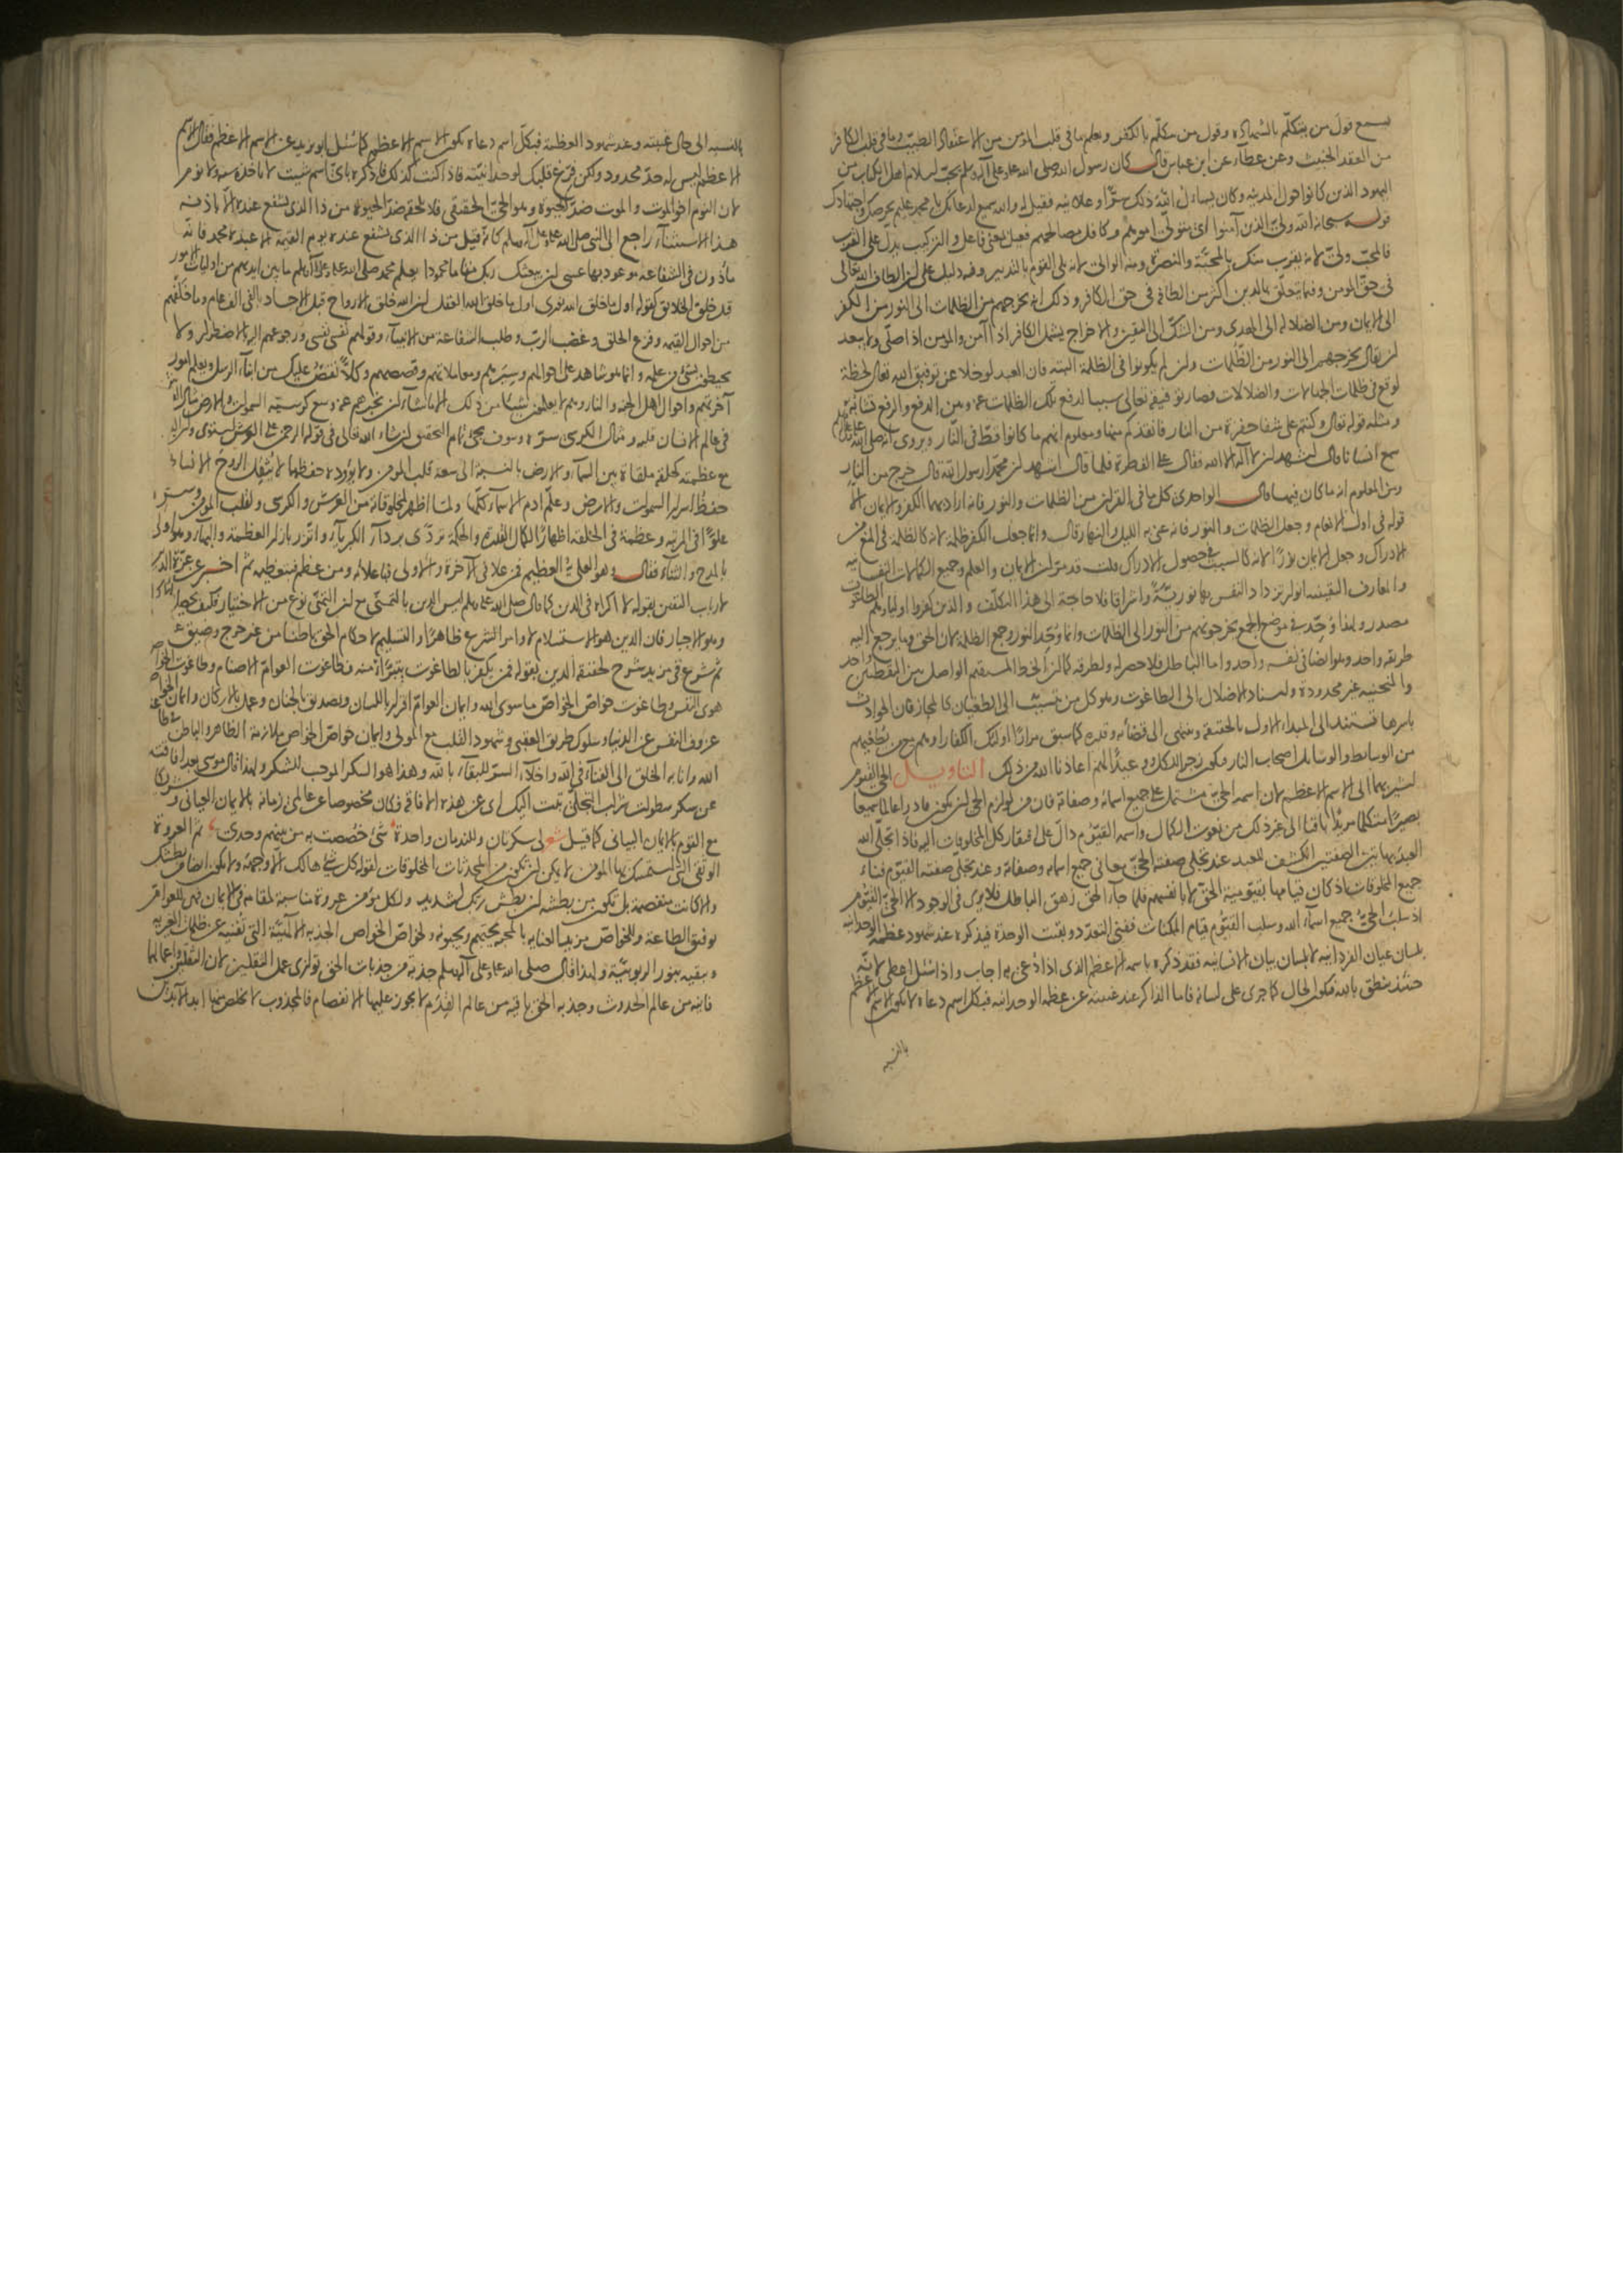 يسمع قول من يتكلم بالشهادة وقول من يتكلم بالكفر ويعلم ما في قلب المؤمن من الاعتقاد الطيب وما في قلب الكافر
من العقد الخبيث وعن عطاء عن ابن عباس قال كان رسول الله صلى الله عليه وعلى آله وسلم يحب اسلام اهل الكتاب من
اليهود الذين كانوا حول المدينة وكان يسأل الله ذلك سرا وعلانية فقيل له والله سميع لدعائك يا محمد عليم بحرصك واجتهادك
قوله سبحانه الله ولي الذين آمنوا اي متولي امورهم وكافل مصالحهم فعيل بمعنى فاعل والتركيب يدل على القرب
فالمحب ولي لانه يقرب منك بالمحبة والنصرة ومنه الوالي لانه يلي القوم بالتدبير وفيه دليل على ان الطاف الله تعالى
في حق المؤمن وفيما يتعلق بالدين اكثر من الطافه في حق الكافر وذلك انه يخرجهم من الظلمات الى النور من الكفر
الى الايمان ومن الضلالة الى الهدى ومن الشك الى اليقين والاخراج يشمل الكافر اذا آمن والمؤمن اذا صلى ولا يبعد
ان يقال يخرجهم الى النور من الظلمات وان لم يكونوا في الظلمة البتة فان العبد لو خلا عن توفيق الله تعالى لحظة
لوقع في ظلمات الجهالات والضلالات فصار توفيقه تعالى سببا لدفع تلك الظلمات عنه وبين الدفع والرفع تشابه
ومثله قوله تعالى وكنتم على شفا حفرة من النار فانقذكم منها ومعلوم انهم ما كانوا قط في النار ويروى انه صلى الله عليه وعلى آله
سمع انسانا قال اشهد ان لا اله الا الله فقال على الفطرة فلما قال اشهد ان محمدا رسول الله قال خرج من النار
ومن المعلوم انه ما كان فيها قال الواحدي كل ما في القرآن من الظلمات والنور فانه اراد بهما الكفر والايمان الا
قوله في اول الانعام وجعل الظلمات والنور فانه عنى به الليل والنهار قال وانما جعل الكفر ظلمة لانه كالظلمة في المنع من
الادراك وجعل الايمان نورا لانه كالسبب في حصول الادراك قلت قد مر ان الايمان والعلم وجميع الكمالات النفسانية
والمعارف اليقينية انوار تزداد النفس بها نورية واشراقا فلا حاجة الى هذا التكلف والذين كفروا اولياؤهم الطاغوت
مصدر ولهذا وحد في موضع الجمع يخرجونهم من النور الى الظلمات وانما وحد النور وجمع الظلمة لان الحق وما يرجع اليه
طريقه واحد وهو ايضا في نفسه واحد واما الباطل فلا حصر له ولطرقه كما ان الخط المستقيم الواصل بين النقطتين واحد
والمنحنية غير محدودة واسناد الاضلال الى الطاغوت وهو كل من تسبب الى الطغيان كالمجاز فان الحوادث
باسرها تستند الى المبدأ الاول بالحقيقة وتنتهي الى قضائه وقدره كما سبق مرارا اولئك الكفار او هم مع من يطغيهم
من الوسائط والوسائل اصحاب النار فيكون زجرا للكل ووعيدا لهم اعاذنا الله من ذلك التأويل الحي القيوم
يشير بهما الى الاسم الاعظم لان اسمه الحي مشتمل على جميع اسمائه وصفاته فان من لوازم الحي ان يكون قادرا عالما سميعا
بصيرا متكلما مريدا باقيا الى غير ذلك من نعوت الكمال واسمه القيوم دال على افتقار كل المخلوقات اليه فاذا تجلى الله
لعبد بهاتين الصفتين انكشف للعبد عند تجلي صفة الحي معاني جميع اسمائه وصفاته وعند تجلي صفة القيوم فناء
جميع المخلوقات اذ كان قيامها بقيومية الحق لا بانفسهم فلما جاء الحق زهق الباطل فلا يرى في الوجود الا الحي القيوم
اذ سلب الحي جميع اسماء الله وسلب القيوم قيام الممكنات ففني التعدد وبقيت الوحدة فيذكره عند شهود عظمة الوحدانية
بلسان عيان الفردانية لا بلسان بيان الانسانية فقد ذكره باسمه الاعظم الذي اذا دعي به اجاب واذا سئل به اعطى لانه
حينئذ ينطق بالله فيكون الحال كما جرى على لسانه فاما الذاكر عند غيبته عن عظمة الوحدانية فبكل اسم دعاه لا يكون الاسم الاعظم
بالنسبة
بالنسبة الى حال غيبته وعند شهود العظمة فبكل اسم دعاه يكون الاسم الاعظم كما سئل ابو يزيد عن الاسم الاعظم فقال الاسم
الاعظم ليس له حد محدود ولكن فرغ قلبك لوحدانيته فاذا كنت كذلك فاذكره باي اسم شئت لا تأخذه سنة ولا نوم
لان النوم اخو الموت والموت ضد الحيوة وهو الحي الحقيقي فلا يلحقه ضد الحيوة من ذا الذي يشفع عنده الا باذنه
هذا الاستثناء راجع الى النبي صلى الله عليه وعلى آله وسلم كانه قيل من ذا الذي يشفع عنده يوم القيمة الا عبده محمد فانه
مأذون في الشفاعة موعود بها عسى ان يبعثك ربك مقاما محمودا يعلم محمد صلى الله عليه وعلى آله وسلم ما بين ايديهم من اوليات الامور
قبل خلق الخلائق كقوله اول ما خلق الله نوري اول ما خلق الله العقل ان الله خلق الارواح قبل الاجساد بالفي الف عام وما خلفهم
من احوال القيمة وفزع الخلق وغضب الرب وطلب الشفاعة من الانبياء وقولهم نفسي نفسي ورجوعهم اليه بالاضطرار ولا
يحيطون بشيء من علمه وانما هو شاهد على احوالهم وسيرهم ومعاملاتهم وقصصهم وكلا نقص عليك من انباء الرسل ويعلم امور
آخرتهم واحوال اهل الجنة والنار وهم لا يعلمون شيئا من ذلك الا بما شاء ان يخبرهم عنه وسع كرسيه السموات والارض مثال العرش
في عالم الانسان قلبه ومثال الكرسي سره وسوف يجيء تمام التحقيق ان شاء الله تعالى في قوله الرحمن على العرش استوى وان العرش
مع عظمته كحلقة ملقاة بين السماء والارض بالنسبة الى سعة قلب المؤمن ولا يؤوده حفظهما لا يثقل الروح الانساني
حفظ اسرار السموات والارض وعلم آدم الاسماء كلها ولما اظهر لمخلوقاته من العرش والكرسي ولقلب المؤمن وسره
علوا في المرتبة وعظمة في الخلقة اظهارا لكمال القدرة والحكمة تردى برداء الكبرياء واتزر بازار العظمة والبهاء وهو اولى
بالمدح والثناء فقال وهو العلي العظيم فمن علا في الآخرة والاولى فباعلائه ومن عظم فبتعظيمه ثم اخبر عن عزة الدين
لارباب اليقين بقوله لا اكراه في الدين كما قال صلى الله عليه وسلم ليس الدين بالتمني مع ان التمني نوع من الاختيار فكيف يحصل بالاكراه
وهو الاجبار فان الدين هو الاستسلام لاوامر الشرع ظاهرا والتسليم لاحكام الحق باطنا من غير حرج وضيق
ثم شرع في مزيد شرح لحقيقة الدين بقوله فمن يكفر بالطاغوت يتبرأ منه فطاغوت العوام الاصنام وطاغوت الخواص
هوى النفس وطاغوت خواص الخواص ما سوى الله وايمان العوام اقرار باللسان وتصديق بالجنان وعمل بالاركان وايمان الخواص
عزوف النفس عن الدنيا وسلوك طريق العقبى وشهود القلب مع المولى وايمان خواص الخواص ملازمة الظاهر والباطن في طاعة
الله وانابة الخلق الى الفناء في الله واخلاء السر للبقاء بالله وهذا هو السكر الموجب للشكر ولهذا قال موسى بعد افاقته
عن سكر سطوات شراب التجلي تبت اليك اي عن هذه الافاقة فكان مخصوصا عن عالمي زمانه بالايمان العياني وشريكا
مع القوم بالايمان البياني كما قيل شعر لي سكرتان وللندمان واحدة شيء خصصت به من بينهم وحدي ثم العروة
الوثقى التي استمسك بها المؤمن لا يمكن ان تكون من المحدثات المخلوقات لقوله كل شيء هالك الا وجهه ولا يكون ايضا من بطشك
والا كانت منفصمة بل تكون من بطشه ان بطش ربك لشديد ولكل مؤمن عروة مناسبة لمقامه في الايمان فهي للعوام
توفيق الطاعة وللخواص مزيد العناية بالمحبة يحبهم ويحبونه ولخواص الخواص الجذبة الالهية التي تفنيه عن ظلمات الغيرية
وتبقيه بنور الربوبية ولهذا قال صلى الله عليه وعلى آله وسلم جذبة من جذبات الحق توازي عمل الثقلين لان الثقلين واعمالهما
فانية من عالم الحدوث وجذبة الحق باقية من عالم القدم لا يجوز عليها الانفصام فالمجذوب لا يخلص منها ابد الآبدين